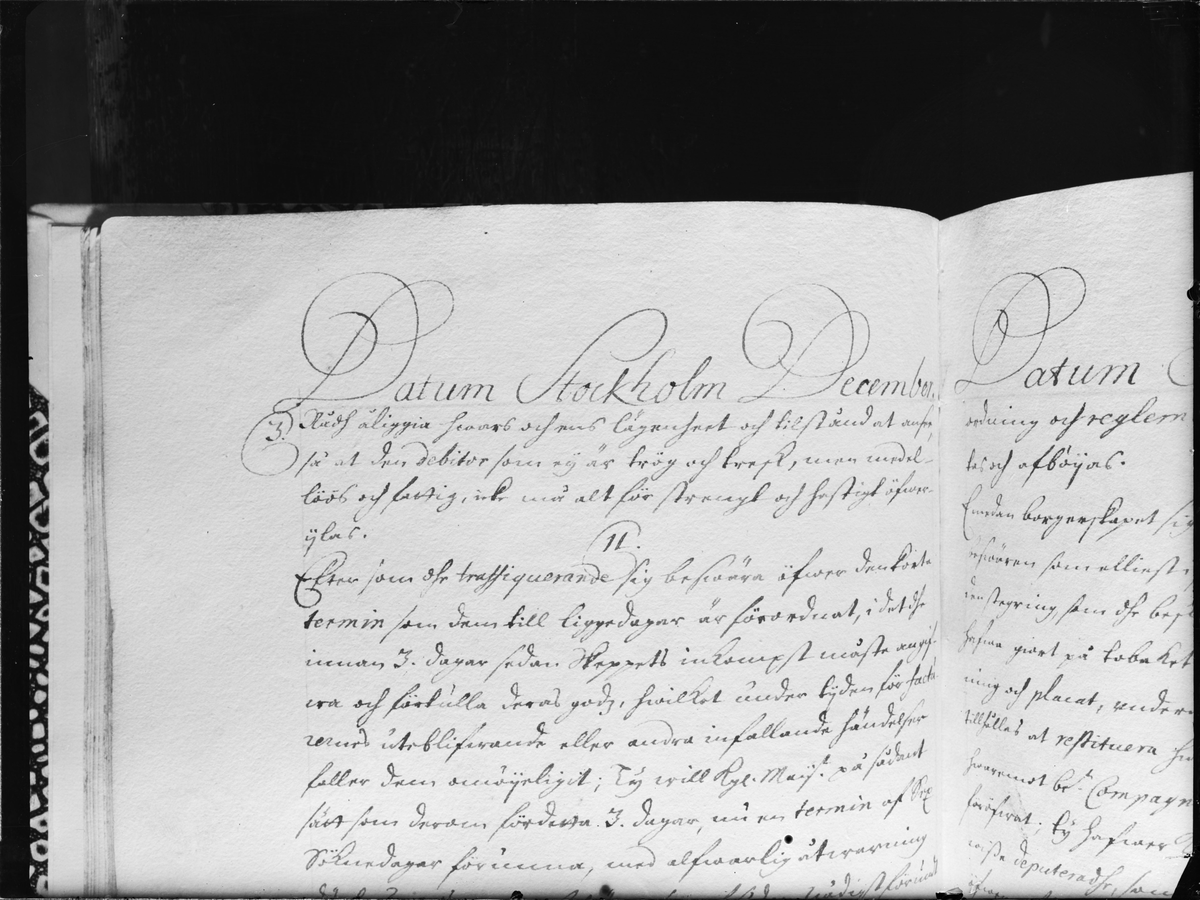 Datum Stockholm December.
3. Rådh åliggia hwars och ens lägenheet och tilstånd at ansee,
så at den debitor som ey är trög och tresk, men medel-
löös och fattig, icke må alt för strengt och hastigt öfwer-
ylas.
11.
Efter som dhe traffiquerande sig beswära öfwer den korta
termin som dem till liggedagar är förordnat, i det dhe
innan 3. dagar sedan Skeppets inkompst måste angif-
wa och förtulla deras godz, hwilket under tyden för factu-
rernes uteblifwande eller andra infallande händelser
faller dem omöyeligit; Ty will Kgl. Maij:t på sådant
sätt som derom förderta 3. dagar, nu en termin af Sex
Söknedagar förunna, med alfwarlig åtwarning
nådigst förund
Datum
ordning och reglem
tes och afböyas.
Emedan borgerskapet sig
beswären som elliest
den stegring som dhe bes
hafwa giort på tobaket
ning och placat, under
tillhålles at restituera
hwaremot be:te Compagn
ty hafwer
wisse deputerade, som